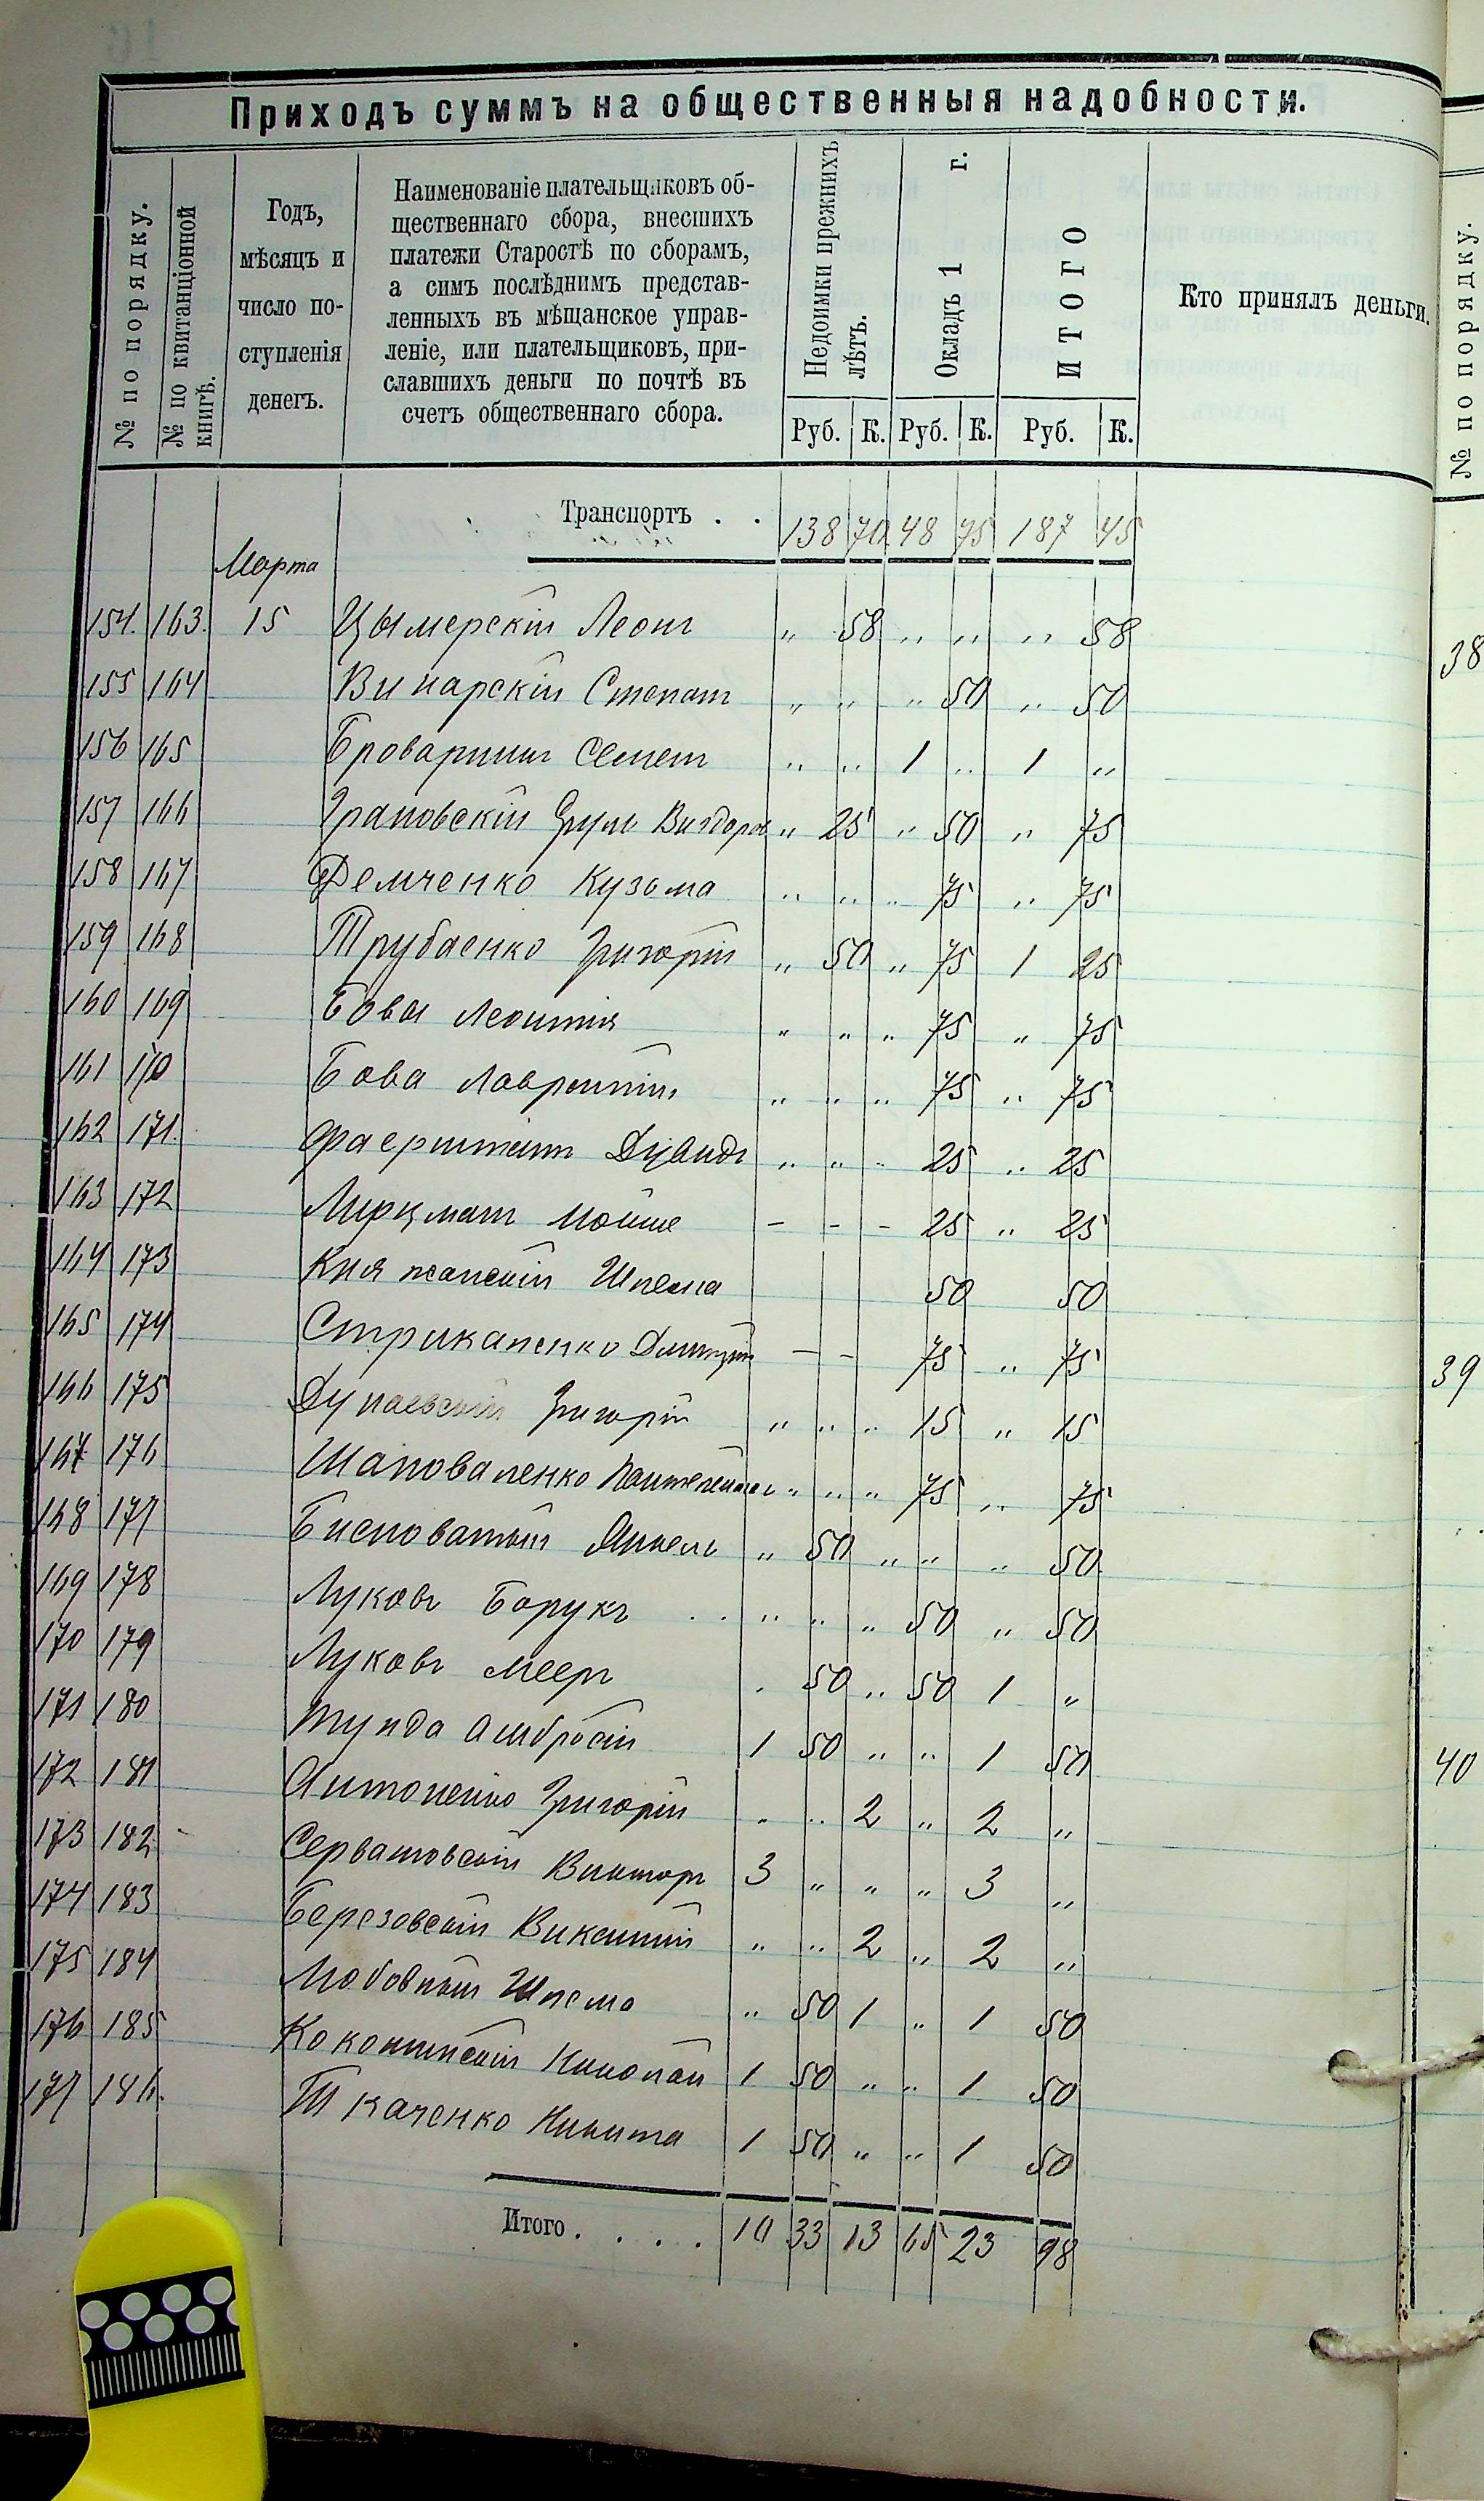 Приходъ суммъ на общественныя надобности.
№ по порядку.
№ по квитанціонной книгѣ.
Годъ,
мѣсяцъ и
число по-
ступленія
денегъ.
Наименованіе плательщиковъ об-
щественнаго сбора, внесшихъ
платежи Старостѣ по сборамъ,
а симъ послѣднимъ представ-
ленныхъ въ мѣщанское управ-
леніе, или плательщиковъ, при-
славшихъ деньги по почтѣ въ
счетъ общественнаго сбора.
Недоимки прежнихъ лѣтъ.
Окладъ 1 г.
ИТОГО
Кто принялъ деньги.
Руб. К. Руб. К. Руб. К.
№ по порядку.
Транспортъ . . 138 70 48 75 187 45
Марта
154. 163. 15 Цымерскій Леонъ „ 58 „ „ „ 58
155 164 Винарскій Степанъ „ „ „ 50 „ 50
156 165 Броварникъ Семенъ „ „ 1 „ 1 „
157 166 Грановскій „ 25 „ 50 „ 75
158 167 Демченко Кузьма „ „ „ 75 „ 75
159 168 Трубаенко Григорій „ 50 „ 75 1 25
160 169 Бова Леонтій „ „ „ 75 „ 75
161 170 Бова Лаврентій „ „ „ 75 „ 75
162 171. Фаерштейнъ Дувидъ „ „ „ 25 „ 25
163 172 Мойше – – – 25 „ 25
164 173 Княжанскій Шлема 50 50
165 174 Стрикаленко Дмитрій – – 75 „ 75
166 175 Дунаевскій Григорій „ „ „ 15 „ 15
167 176 Шаповаленко Пантелеймонъ „ „ „ 75 „ 75
168 177 Бисноватый Янкель „ 50 „ „ „ 50
169 178 Луковъ Борухъ . . „ „ „ 50 „ 50
170 179 Луковъ Мееръ . 50 „ 50 1 „
171 180 Амбросій 1 50 „ „ 1 50
172 181 Антоненко Григорій „ „ 2 „ 2 „
173 182 Викторъ 3 „ „ „ 3 „
174 183 Березовскій Викентій „ „ 2 „ 2 „
175 184 Шлема „ 50 1 „ 1 50
176 185 1 50 „ „ 1 50
177 186. Ткаченко Никита 1 50 „ „ 1 50
Итого . . . . 10 33 13 65 23 98
38
39
40